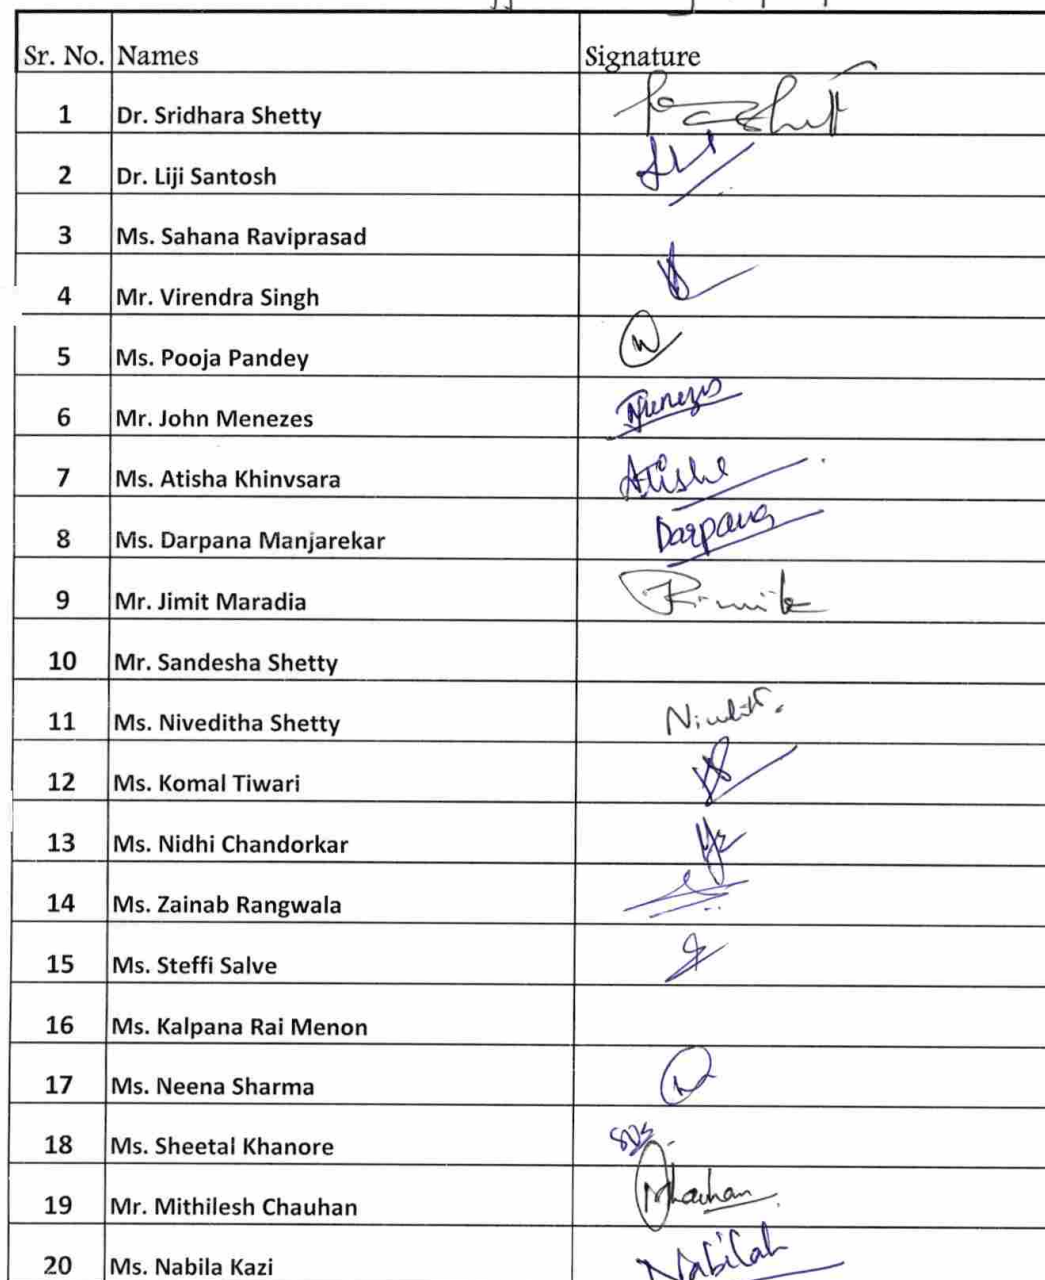 Sr. No. Names Signature
1 Dr. Sridhara Shetty
2 Dr. Liji Santosh
3 Ms. Sahana Raviprasad
4 Mr. Virendra Singh
5 Ms. Pooja Pandey
6 Mr. John Menezes Menezes
7 Ms. Atisha Khinvsara Atisha
8 Ms. Darpana Manjarekar Darpana
9 Mr. Jimit Maradia
10 Mr. Sandesha Shetty
11 Ms. Niveditha Shetty
12 Ms. Komal Tiwari
13 Ms. Nidhi Chandorkar
14 Ms. Zainab Rangwala
15 Ms. Steffi Salve
16 Ms. Kalpana Rai Menon
17 Ms. Neena Sharma
18 Ms. Sheetal Khanore
19 Mr. Mithilesh Chauhan Mchauhan
20 Ms. Nabila Kazi Nabilah